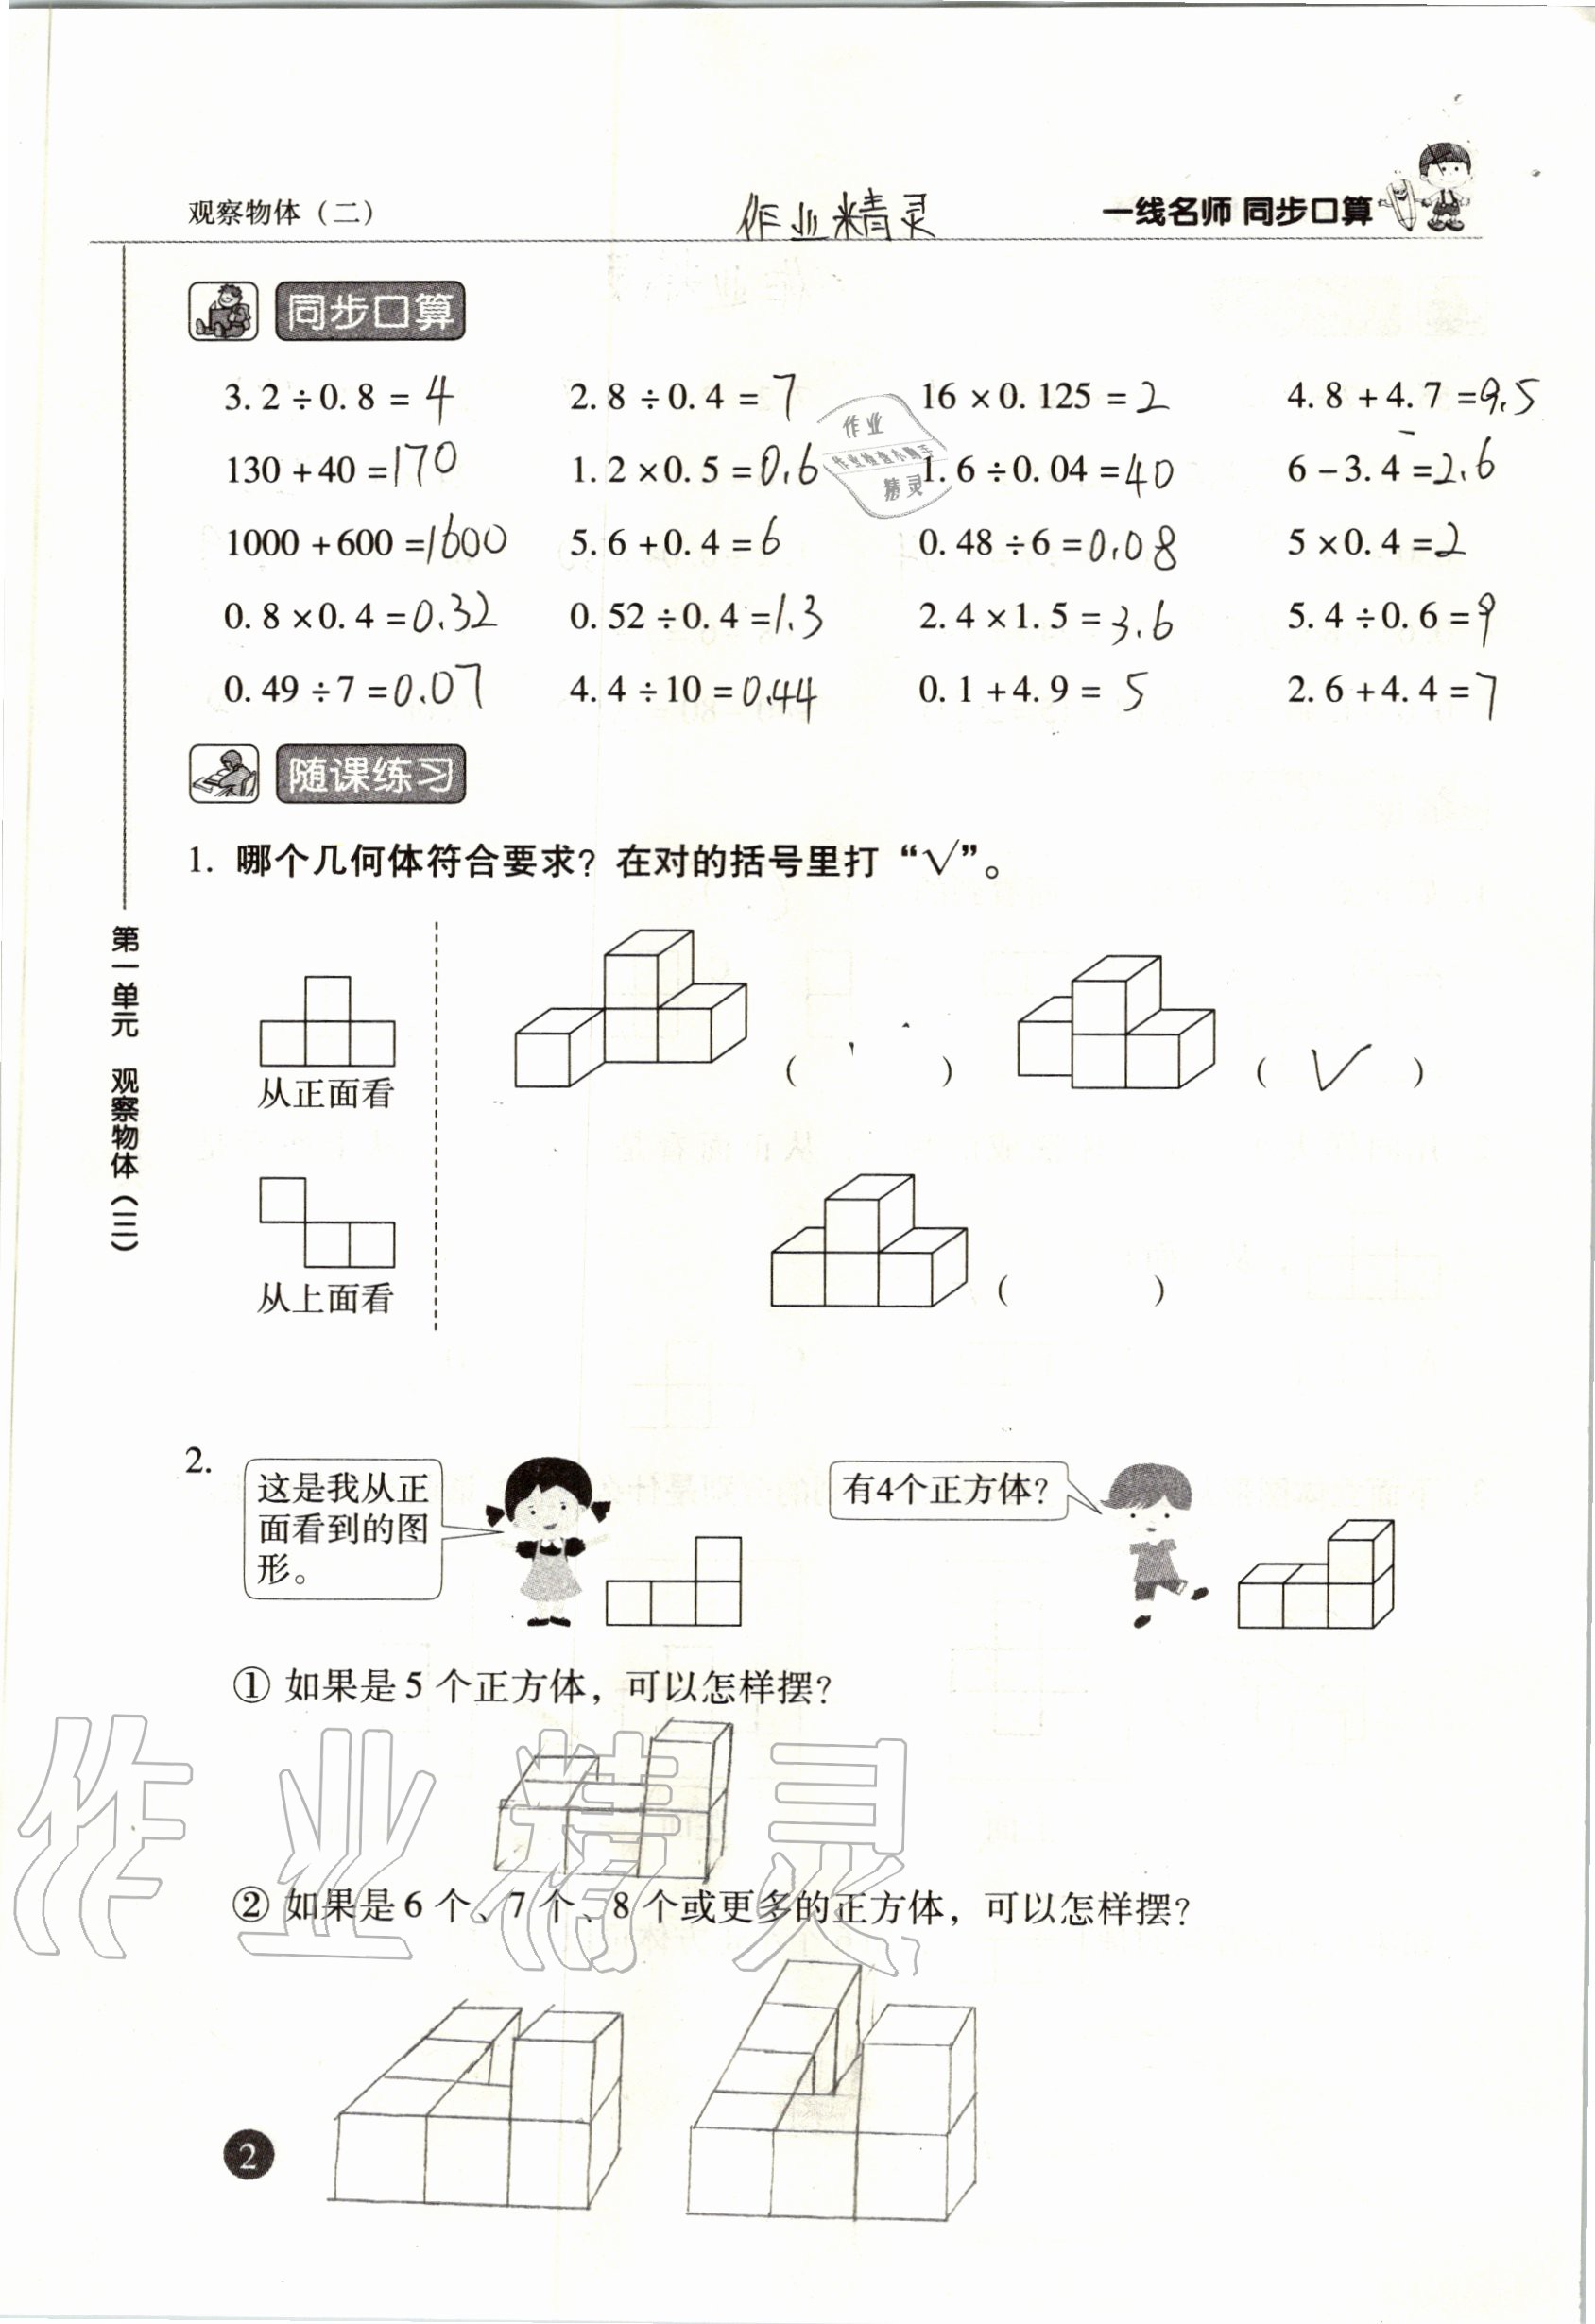 观察物体（二）
作业精灵
一线名师 同步口算
同步口算
3.2÷0.8=4 2.8÷0.4=7 16×0.125=2 4.8+4.7=9.5
130+40=170 1.2×0.5=0.6 1.6÷0.04=40 6-3.4=2.6
1000+600=1600 5.6+0.4=6 0.48÷6=0.08 5×0.4=2
0.8×0.4=0.32 0.52÷0.4=1.3 2.4×1.5=3.6 5.4÷0.6=9
0.49÷7=0.07 4.4÷10=0.44 0.1+4.9=5 2.6+4.4=7
作业
作业检查小助手
精灵
随课练习
1. 哪个几何体符合要求？在对的括号里打“√”。
( ) ( √ )
从正面看
( )
从上面看
第一单元 观察物体（三）
2.
这是我从正
面看到的图
形。
有4个正方体？
① 如果是5个正方体，可以怎样摆？
作业精灵
② 如果是6个、7个、8个或更多的正方体，可以怎样摆？
2